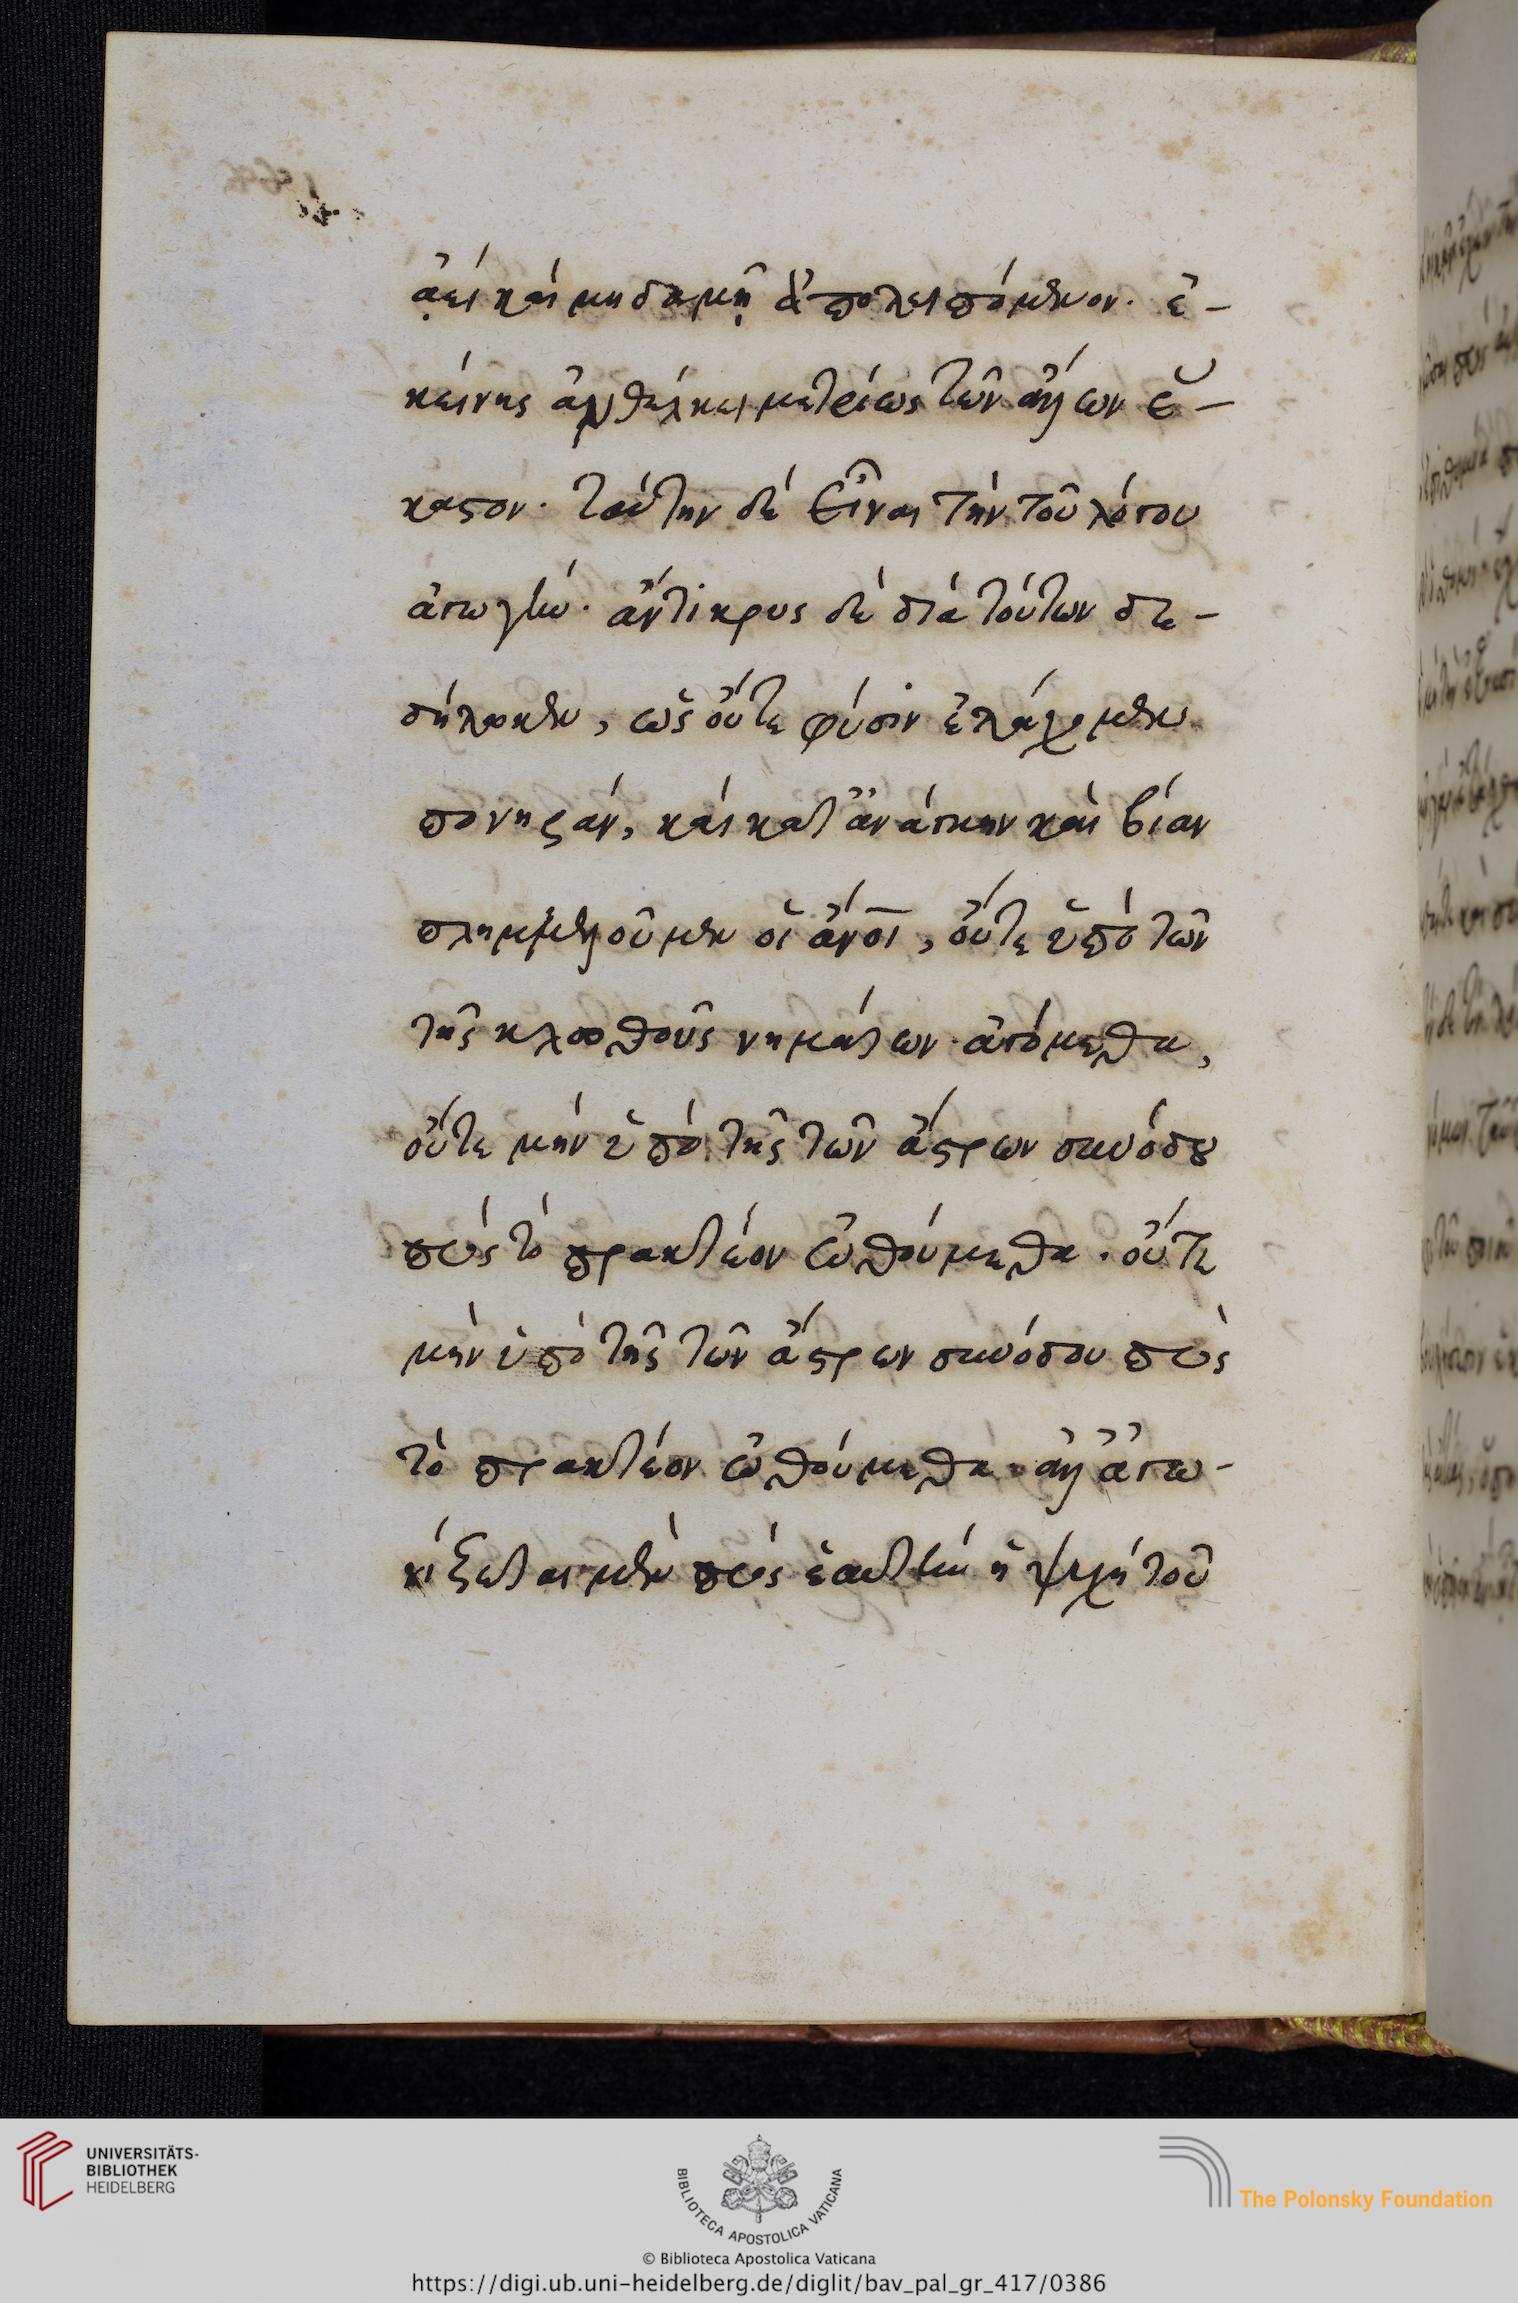 ἀεὶ καὶ μηδαμῆ ἀπολειπόμενον. ἐ-
κείνης ἀνθέλκει μετρίως τῶν ἄλλων ἕ-
καστον. ταύτην δὲ εἶναι τὴν τοῦ λόγου
ἀγωγὴν. ἄντικρυς δὲ διὰ τούτων δε-
δήλωκεν, ὡς οὔτε φύσιν ἐλάχομεν
πονηράν, καὶ κατ ἀνάγκην καὶ βίαν
πλημμελοῦμεν οἱ ἄνοι, οὔτε ὑπὸ τῶν
τῆς κλωθοῦς νημάτων ἀγόμεθα,
οὔτε μὴν ὑπὸ τῆς τῶν ἄστρων συνόδου
πρὸς τὸ πρακτέον ὠθούμεθα. οὔτε
μὴν ὑπὸ τῆς τῶν ἄστρων συνόδου πρὸς
τὸ πρακτέον ὠθούμεθα. ἀλλ ἀγω-
νίζεται μὲν πρὸς ἑαυτὴν ἡ ψυχὴ τοῦ
UNIVERSITÄTS-
BIBLIOTHEK
HEIDELBERG
BIBLIOTECA APOSTOLICA VATICANA
The Polonsky Foundation
© Biblioteca Apostolica Vaticana
https://digi.ub.uni-heidelberg.de/diglit/bav_pal_gr_417/0386